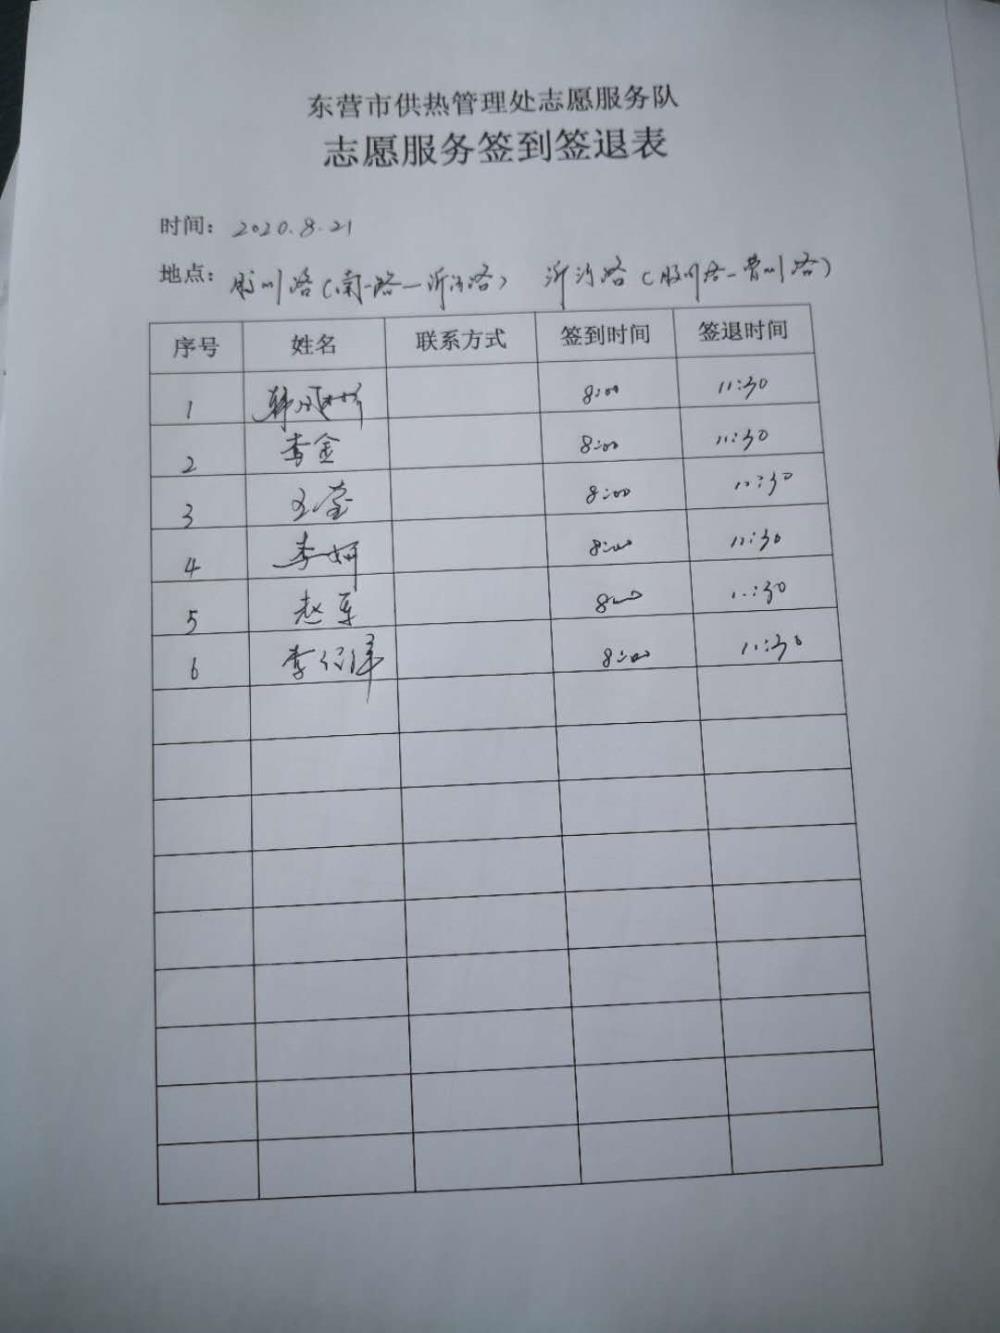 东营市供热管理处志愿服务队
志愿服务签到签退表
时间：2020.8.21
地点：胶州路（南一路—沂河路） 沂河路（胶州路—曹州路）
序号 姓名 联系方式 签到时间 签退时间
1 韩 8:00 11:30
2 李金 8:00 11:30
3 王莹 8:00 11:30
4 李妍 8:00 11:30
5 赵军 8:00 11:30
6 李 8:00 11:30